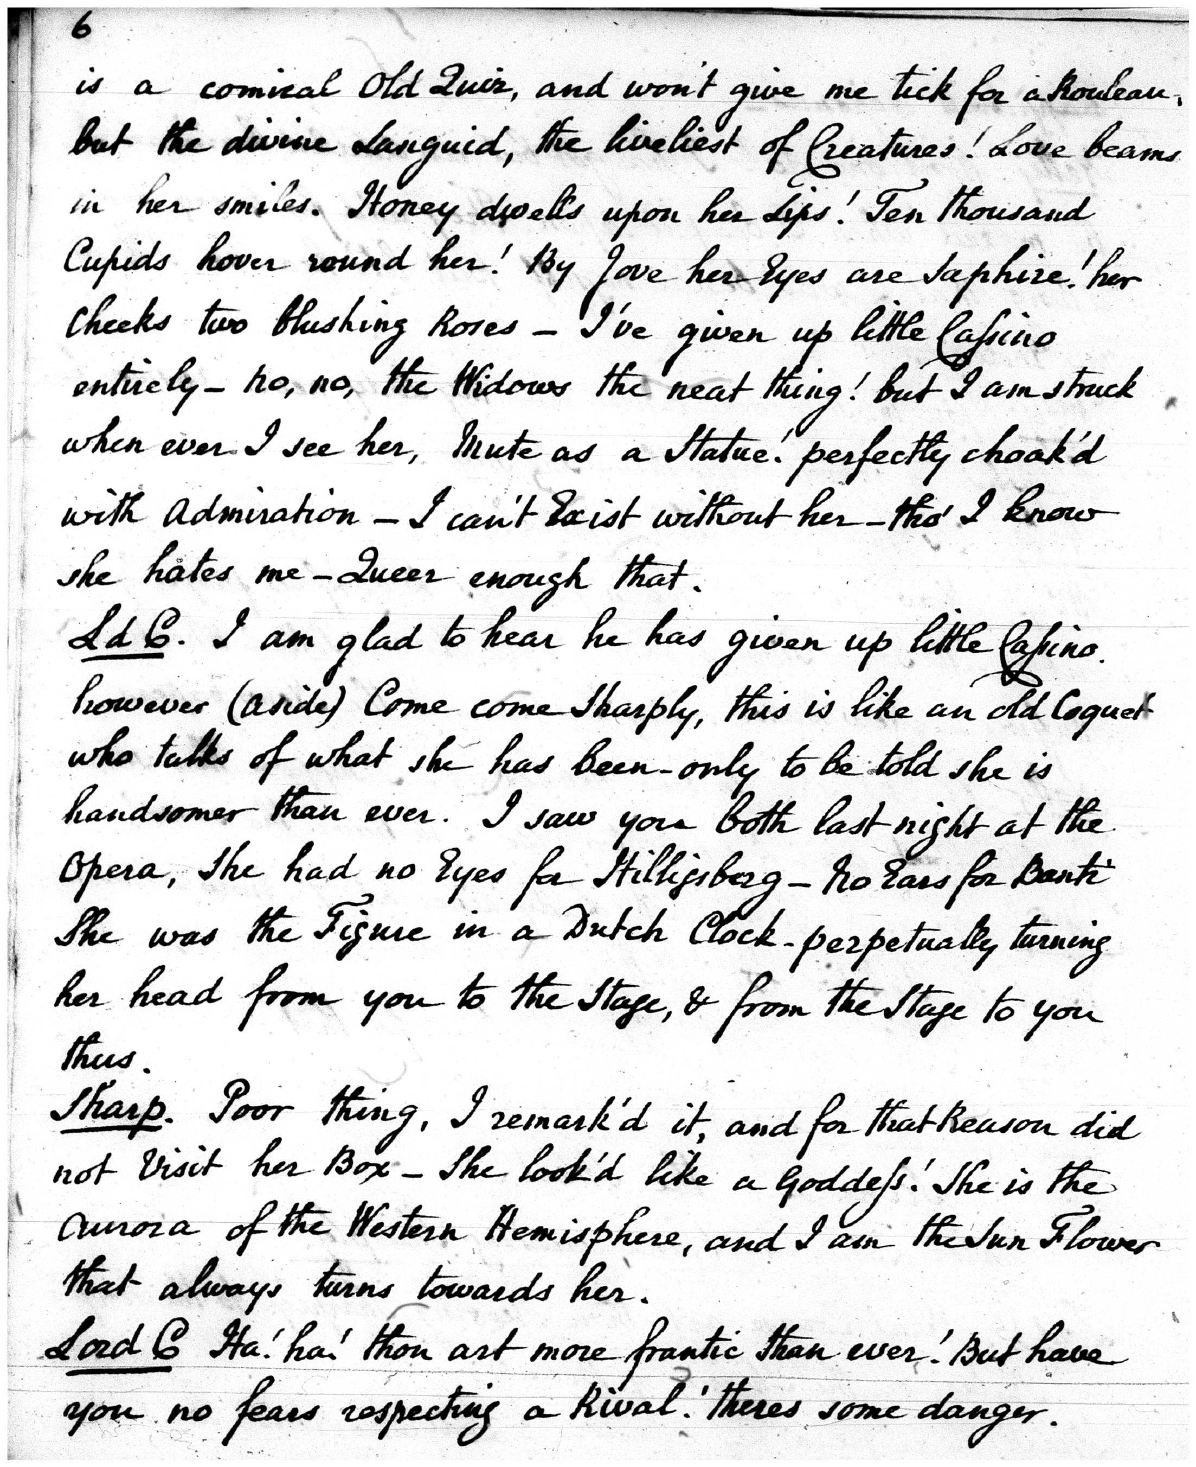 6
is a comical Old Quiz, and won't give me tick for a Rouleau,
but the divine Languid, the liveliest of Creatures! Love beams
in her smiles. Honey dwells upon her Lips! Ten thousand
Cupids hover round her! By Jove her Eyes are Saphire! her
Cheeks two blushing Roses – I've given up little Caſsino
entirely – no, no, the Widows the neat thing! but I am struck
when ever I see her, Mute as a Statue! perfectly choak'd
with Admiration – I can't Exist without her – tho' I know
she hates me – Queer enough that.
Ld C. I am glad to hear he has given up little Caſsino.
however (aside) Come come Sharply, this is like an old Coquet
who talks of what she has been – only to be told she is
handsomer than ever. I saw you both last night at the
Opera, She had no Eyes for Hilligsberg – No Ears for Banti
She was the Figure in a Dutch Clock – perpetually turning
her head from you to the Stage, & from the Stage to you
thus.
Sharp. Poor thing, I remark'd it, and for that Reason did
not Visit her Box – She look'd like a Goddeſs! She is the
Aurora of the Western Hemisphere, and I am the Sun Flower
that always turns towards her.
Lord C Ha! ha! thou art more frantic than ever! But have
you no fears respecting a Rival! theres some danger.